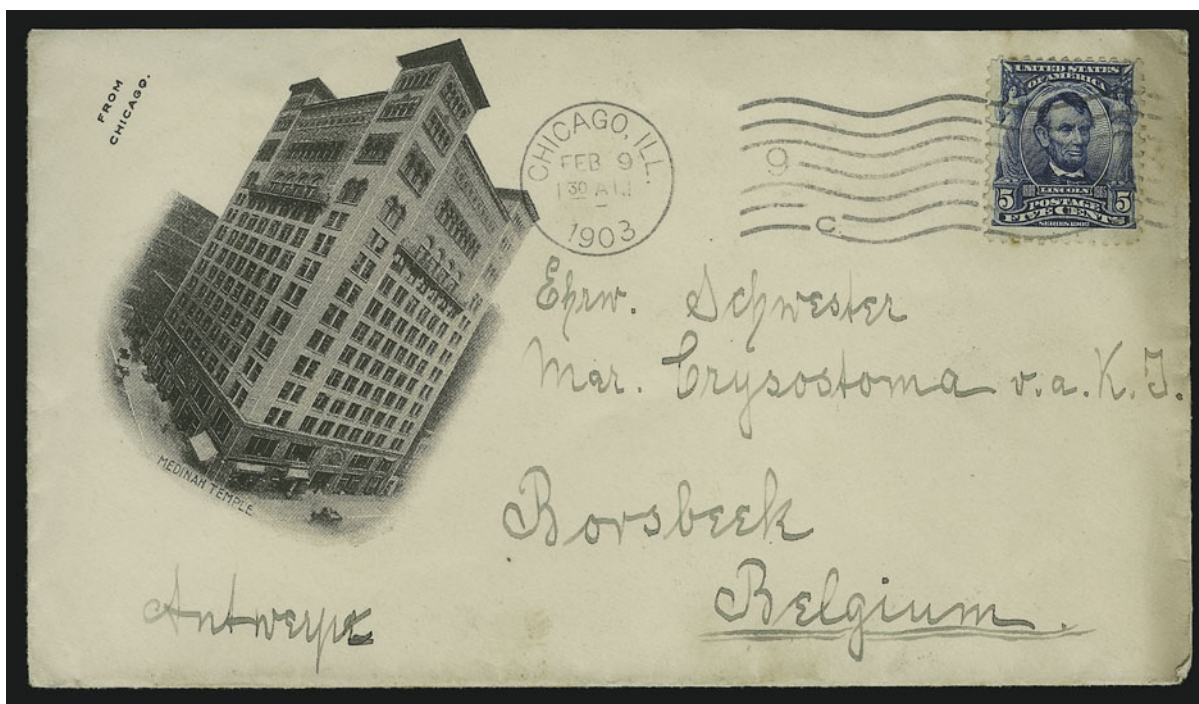 FROM
CHICAGO.
MEDINAH TEMPLE
CHICAGO, ILL.
FEB 9
30 A
1903
9
C.
UNITED STATES
OF AMERICA
1809 LINCOLN 1865
5 POSTAGE 5
FIVE CENTS
SERIES 1902
Ehrw. Schwester
Mar. Crysostoma v.a.K.J.
Borsbeek
Belgium.
Antwerpe